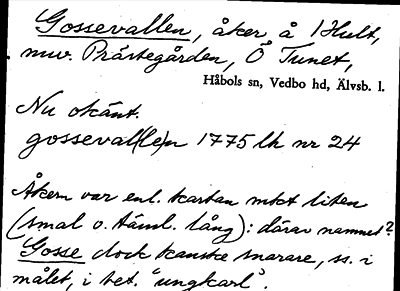 Gossevallen, åker å 1 Hult,
nuv. Prästegården, Ö Tunet,
Håbols sn, Vedbo hd, Älvsb. l.
Nu okänt.
gosseval(le)n 1775 lh nr 24
Åkern var enl. kartan mkt liten
(smal o. täml. lång): därav namnet?
Gosse dock kanske snarare, ss. i
målet, i bet. "ungkarl".